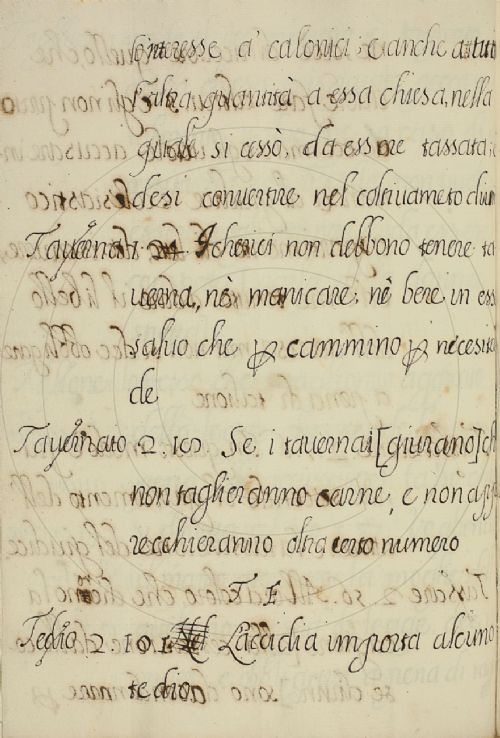 interesse a' calonici: e anche a tutt
l'altra quantità a essa chiesa, nella
quale si cessò, da essere tassata:
desi convertire nel coltivameto diui
Tavernai. I cherici non debbono tenere ta
uerna, nè manicare, nè bere in es
saluo che p cammino p necesit
de
Tavernaio 2. Se i tavernai [giurano] ch
non taglieranno carne, e non app
recchieranno oltra certo numero
T E
Tedio 2. 101 L'accidia importa alcuno
tedio